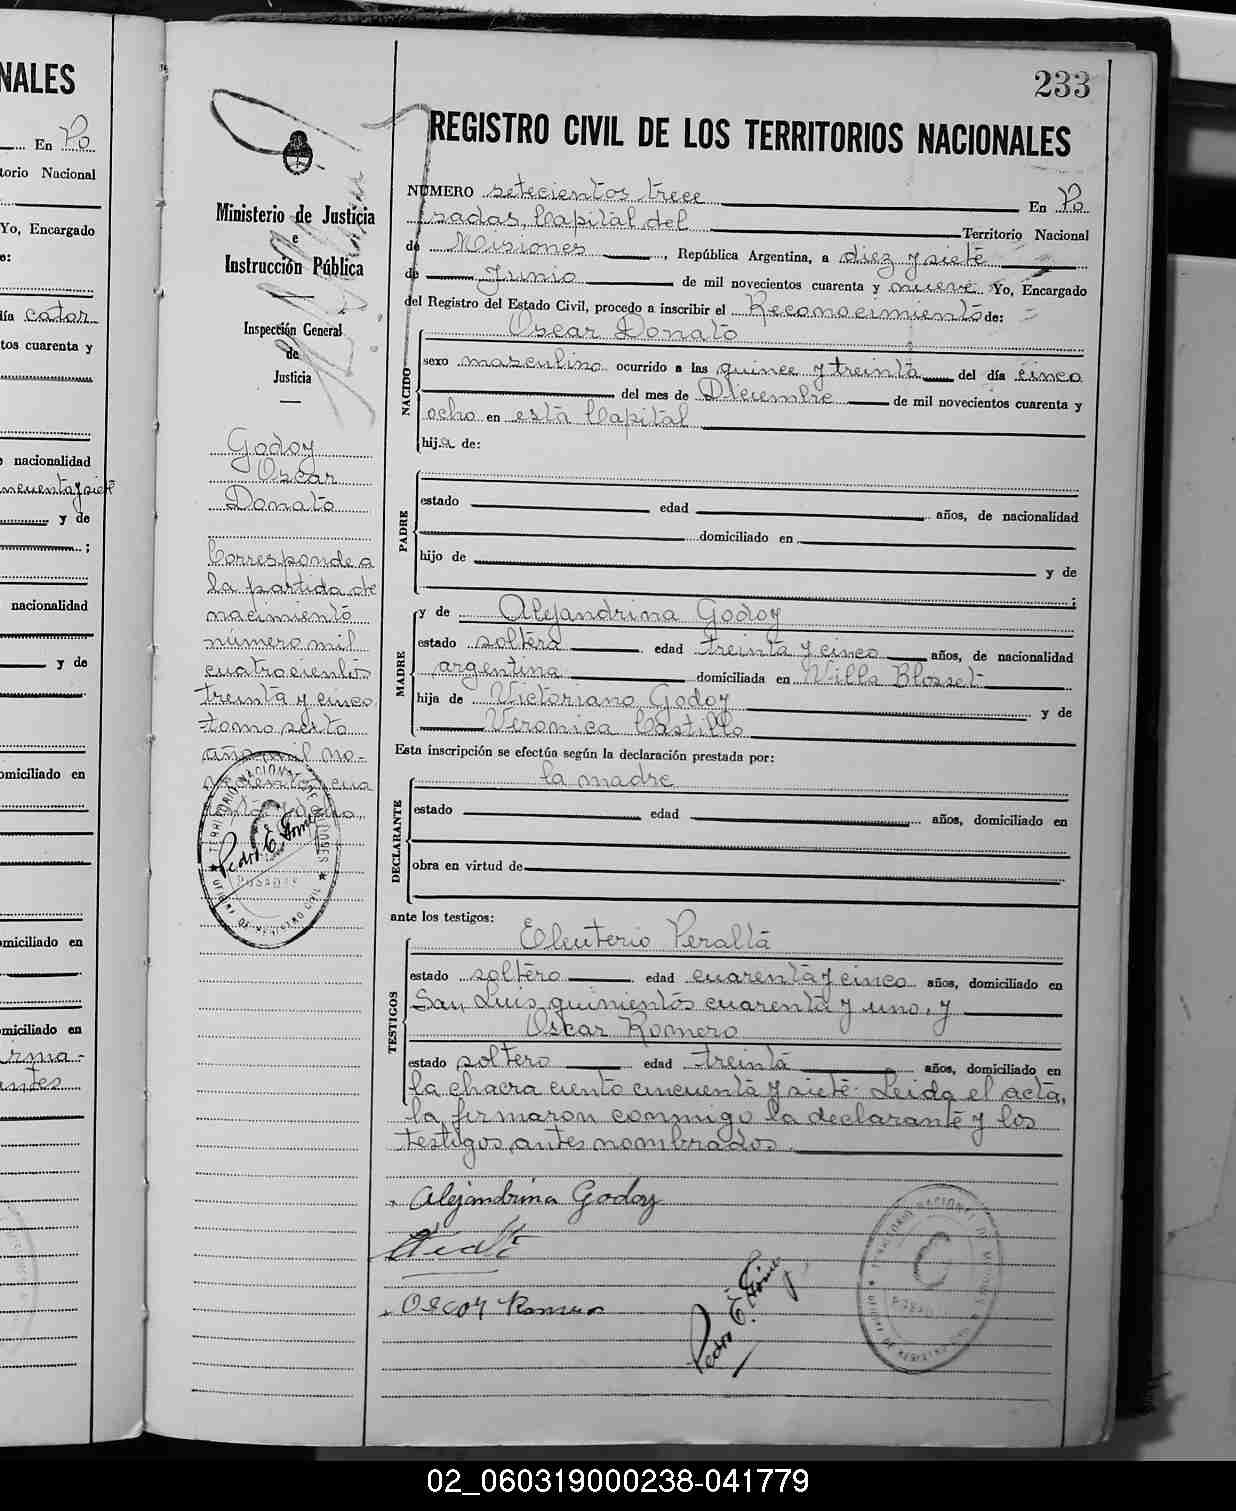 NALES
En Po
torio Nacional
Yo, Encargado
o:
día cator
tos cuarenta y
nacionalidad
ncuenta y siete
y de
;
nacionalidad
y de
omiciliado en
omiciliado en
omiciliado en
irma-
antes
233
REGISTRO CIVIL DE LOS TERRITORIOS NACIONALES
Ministerio de Justicia
e
Instrucción Pública
Inspección General
de
Justicia
Godoy
Oscar
Donato
Corresponde a
la partida de
nacimiento
número mil
cuatrocientos
treinta y cinco
tomo sexto
año mil no-
TERRITORIO NACIONAL DE MISIONES
Pedro E. Gómez
POSADAS
OFICINA DE REGISTRO CIVIL
NÚMERO setecientos trece En Po
sadas, Capital del Territorio Nacional
de Misiones, República Argentina, a diez y siete
de Junio de mil novecientos cuarenta y nueve Yo, Encargado
del Registro del Estado Civil, procedo a inscribir el Reconocimiento de:
NACIDO
Oscar Donato
sexo masculino ocurrido a las quince y treinta del día cinco
del mes de Diciembre de mil novecientos cuarenta y
ocho en esta Capital
hijo de:
PADRE
estado edad años, de nacionalidad
domiciliado en
hijo de y de
;
MADRE
y de Alejandrina Godoy
estado soltera edad treinta y cinco años, de nacionalidad
argentina domiciliada en Villa Blosset
hija de Victoriano Godoy y de
Veronica Castillo
Esta inscripción se efectúa según la declaración prestada por:
DECLARANTE
la madre
estado edad años, domiciliado en
obra en virtud de
ante los testigos:
TESTIGOS
Eleuterio Peralta
estado soltero edad cuarenta y cinco años, domiciliado en
San Luis quinientos cuarenta y uno, y
Oscar Romero
estado soltero edad treinta años, domiciliado en
la chacra ciento cincuenta y siete. Leida el acta,
la firmaron conmigo la declarante y los
testigos antes nombrados.
Alejandrina Godoy
Oscar Romero
Pedro E. Gómez
02_060319000238-041779